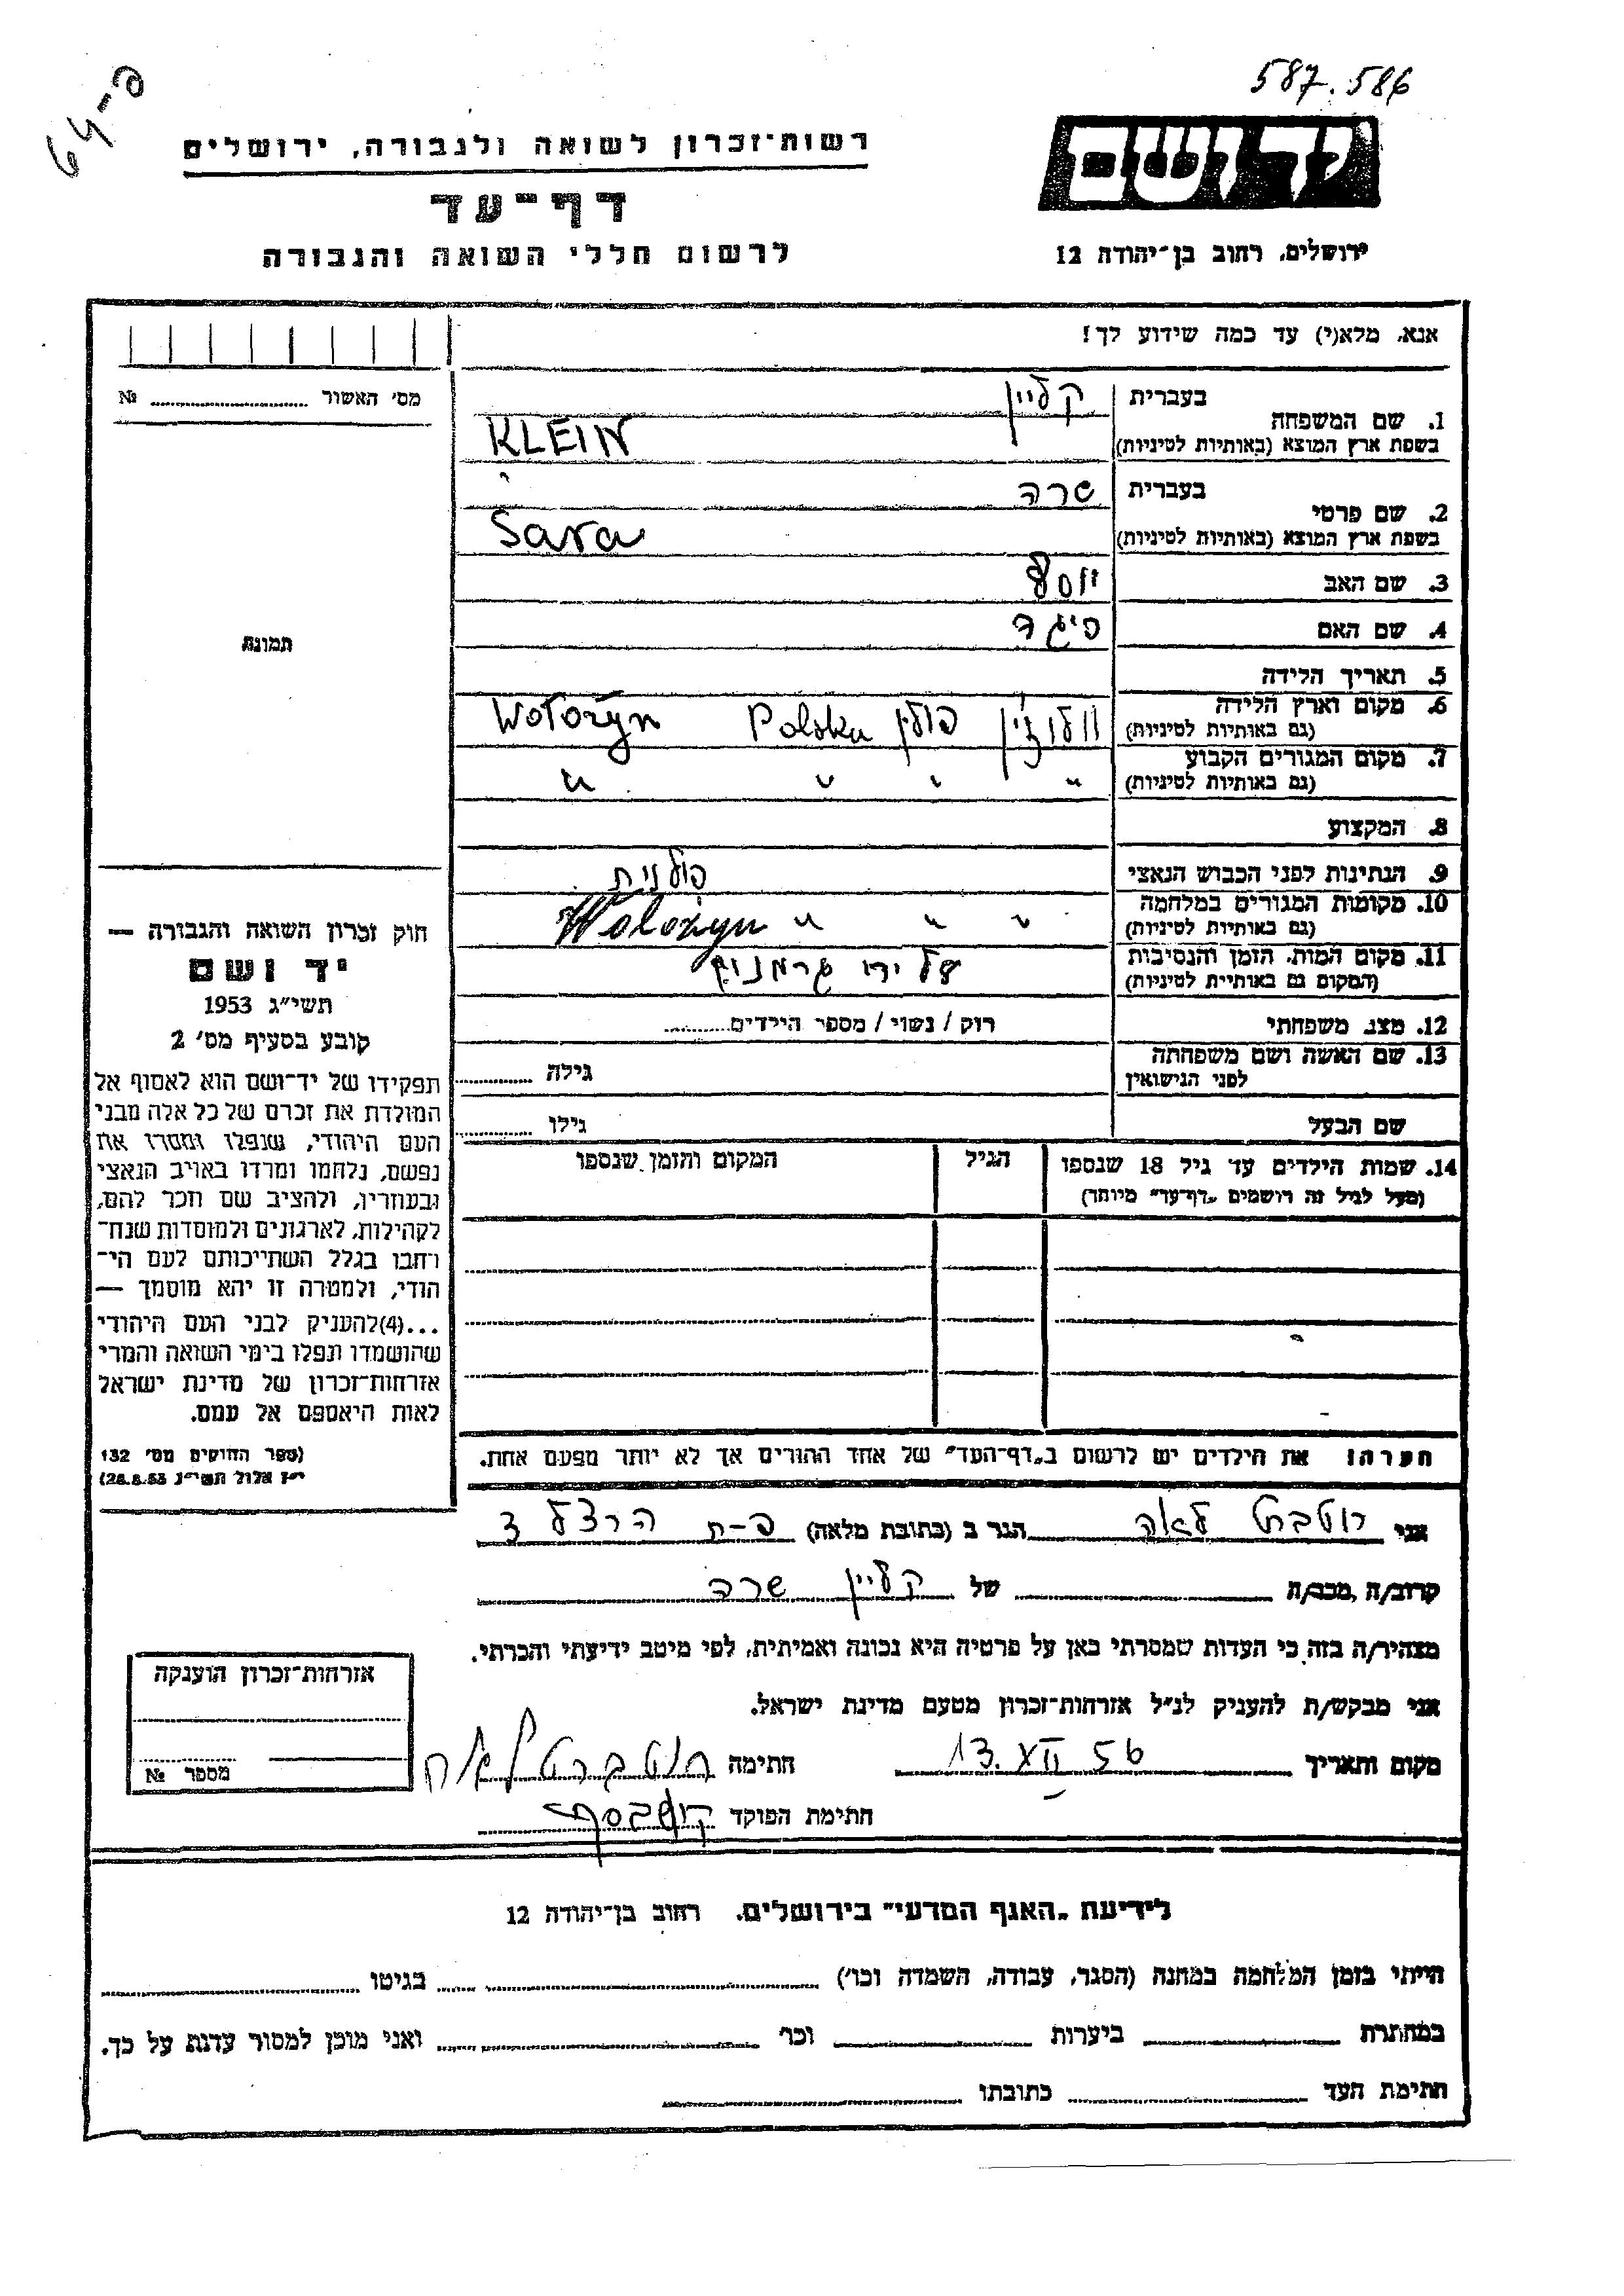 587.586
פ-64
יד ושם
רשות-זכרון לשואה ולגבורה, ירושלים
דף-עד
לרשום חללי השואה והגבורה
ירושלים, רחוב בן-יהודה 12
אנא, מלא(י) עד כמה שידוע לך!
מס' האשור № 
1. שם המשפחה בעברית קליין
בשפת ארץ המוצא (באותיות לטיניות) KLEIN
2. שם פרטי בעברית שרה
בשפת ארץ המוצא (באותיות לטיניות) Sara
3. שם האב יוסף
4. שם האם פיגה
5. תאריך הלידה
6. מקום וארץ הלידה וולוז'ין פולין Polska Wołożyn
(גם באותיות לטיניות)
7. מקום המגורים הקבוע " " " "
(גם באותיות לטיניות)
8. המקצוע
9. הנתינות לפני הכבוש הנאצי פולנית
10. מקומות המגורים במלחמה " " " Wolożyn
(גם באותיות לטיניות)
11. מקום המות, הזמן והנסיבות על ידי גרמנים
(המקום גם באותיית לטיניות)
12. מצב משפחתי רוק / נשוי / מספר הילדים
13. שם האשה ושם משפחתה גילה
לפני הנישואין
שם הבעל גילו
14. שמות הילדים עד גיל 18 שנספו הגיל המקום והזמן שנספו
(מעל לגיל זה רושמים "דף-עד" מיוחד)
הערה: את הילדים יש לרשום ב"דף-העד" של אחד ההורים אך לא יותר מפעם אחת.
תמונה
חוק זכרון השואה והגבורה —
יד ושם
תשי"ג 1953
קובע בסעיף מס' 2
תפקידו של יד-ושם הוא לאסוף אל
המולדת את זכרם של כל אלה מבני
העם היהודי, שנפלו ומסרו את
נפשם, נלחמו ומרדו באויב הנאצי
ובעוזריו, ולהציב שם וזכר להם,
לקהילות, לארגונים ולמוסדות שנח-
רחבו בגלל השתייכותם לעם הי-
הודי, ולמטרה זו יהא מוסמך —
...(4)להעניק לבני העם היהודי
שהושמדו ונפלו בימי השואה והמרי
אזרחות-זכרון של מדינת ישראל
לאות היאספם אל עמם.
(ספר החוקים מס' 132
י"ז אלול תשי"ג 28.8.53)
אני רוטברט לאה הגר ב (כתובת מלאה) פ-ת הרצל 3
קרוב/ה, מכר/ה של קליין שרה
מצהיר/ה בזה כי העדות שמסרתי כאן על פרטיה היא נכונה ואמיתית, לפי מיטב ידיעתי והכרתי.
אני מבקש/ת להעניק לנ"ל אזרחות-זכרון מטעם מדינת ישראל.
מקום ותאריך 13. XII 56 חתימה רוטברט לאה
חתימת הפוקד
אזרחות-זכרון הוענקה
מספר №
לידיעת "האגף המדעי" בירושלים, רחוב בן-יהודה 12
הייתי בזמן המלחמה במחנה (הסגר, עבודה, השמדה וכו') בגיטו
במחתרת ביערות וכו' ואני מוכן למסור עדות על כך.
חתימת העד כתובתו